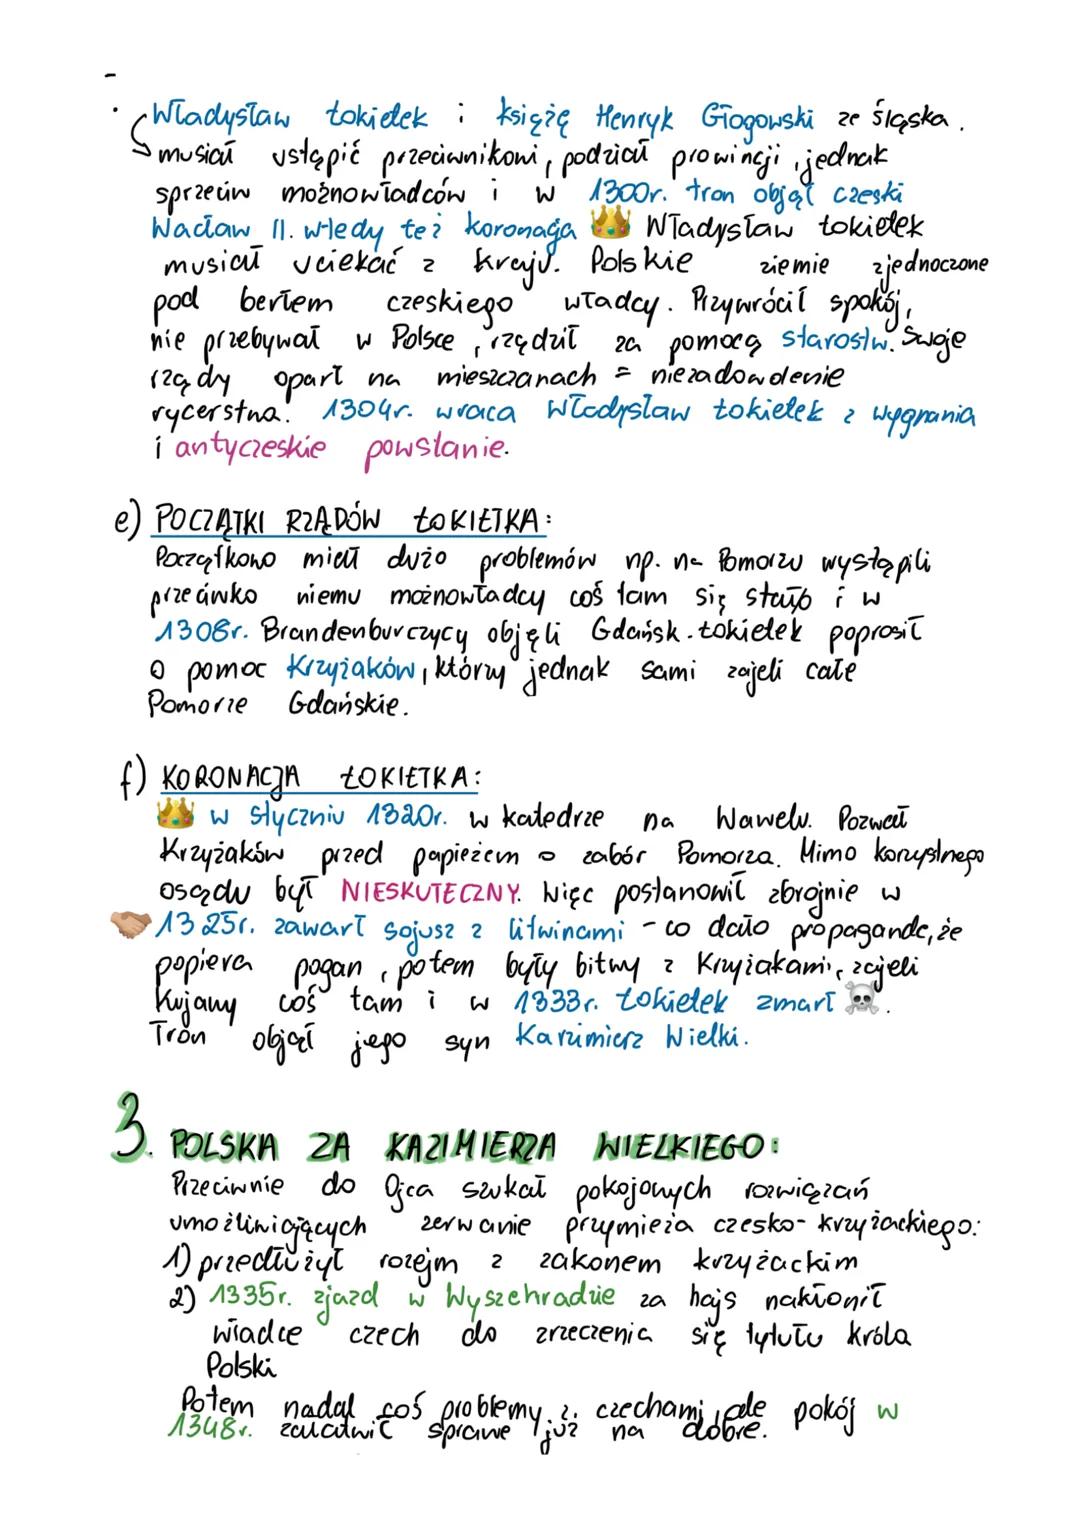 -
· Władysław Łokietek i książę Henryk Głogowski ze Śląska.
musiał ustąpić przeciwnikowi, podział prowincji, jednak
sprzeciw możnowładców i w 1300r. tron objął czeski
Wacław II. wtedy też koronacja 👑 Władysław Łokietek
musiał uciekać z kraju. Polskie ziemie zjednoczone
pod berłem czeskiego władcy. Przywrócił spokój,
nie przebywał w Polsce, rządził za pomocą starostw. Swoje
rządy oparł na mieszczanach = niezadowolenie
rycerstwa. 1304r. wraca Władysław Łokietek z wygnania
i antyczeskie powstanie.
e) POCZĄTKI RZĄDÓW ŁOKIETKA:
Początkowo miał dużo problemów np. na Pomorzu wystąpili
przeciwko niemu możnowładcy coś tam się stało i w
1308r. Brandenburczycy objęli Gdańsk. Łokietek poprosił
o pomoc Krzyżaków, którzy jednak sami zajeli całe
Pomorze Gdańskie.
f) KORONACJA ŁOKIETKA:
👑 w styczniu 1320r. w katedrze na Wawelu. Pozwał
Krzyżaków przed papieżem o zabór Pomorza. Mimo korzystnego
osądu był NIESKUTECZNY. Więc postanowił zbrojnie w
🤝 1325r. zawarł sojusz z litwinami - co dało propagande, że
popiera pogan, potem były bitwy z Krzyżakami, zajeli
Kujawy coś tam i w 1333r. Łokietek zmarł ☠️.
Tron objął jego syn Kazimierz Wielki.
3. POLSKA ZA KAZIMIERZA WIELKIEGO:
Przeciwnie do Ojca szukał pokojowych rozwiązań
umożliwiających zerwanie przymieża czesko-krzyżackiego:
1) przedłużył rozejm z zakonem krzyżackim
2) 1335r. zjazd w Wyszehradzie za hajs nakłonił
władce czech do zrzeczenia się tytułu króla
Polski
Potem nadal coś problemy z czechami, ale pokój w
1348r. załatwił sprawe już na dobre.